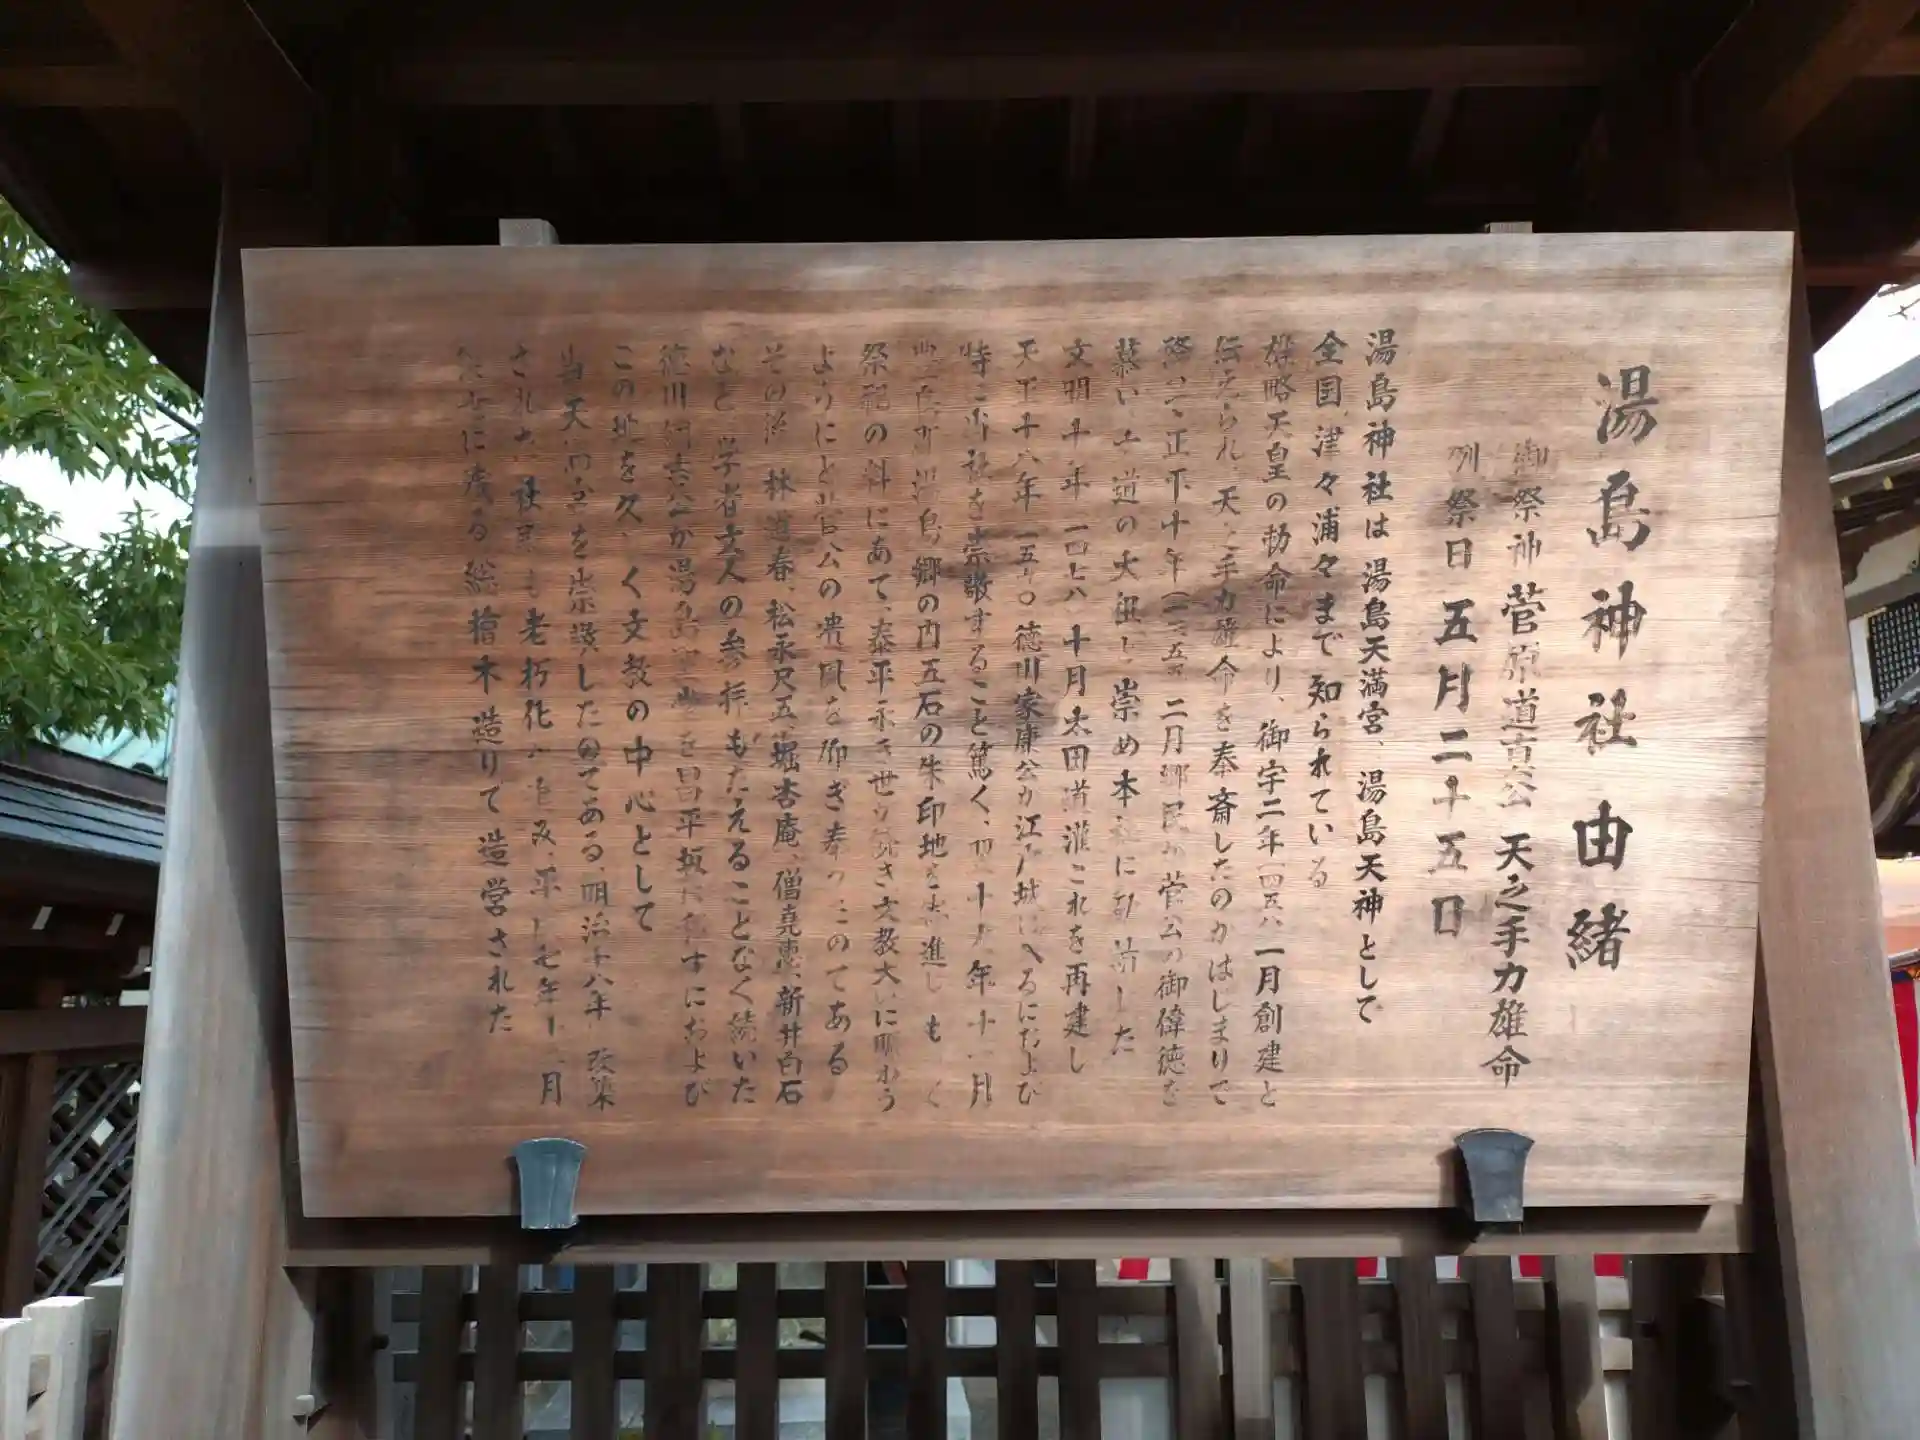 湯島神社由緒
御祭神 菅原道真公 天之手力雄命
例祭日 五月二十五日
湯島神社は湯島天満宮、湯島天神として
全国、津々浦々まで知られている
雄略天皇の勅命により、御宇二年一四五八一月創建と
伝えられ、天之手力雄命を奉斎したのがはじまりで
正平十年 二月郷民が菅公の御偉徳を
慕い 道の大祖と崇め本社に勧請した
文明十年 一四七八 十月太田道灌これを再建し
天正十八年 一五九〇 徳川家康公が江戸城に入るにおよび
特に当社を崇敬すること篤く、 十九年十一月
湯島郷の内五石の朱印地を 進し も く
祭祀の料にあて、泰平永き世が続き文教大いに賑わう
ようにと菅公の遺風を仰ぎ奉 このである
その後 林道春、松永尺五、堀杏庵、僧堯恵、新井白石
など 学者文人の参拝もたえることなく続いた
徳川綱吉公が湯島聖堂を昌平坂に移すにおよび
この地を久しく文教の中心として
当天満宮を崇 したのである、明治十八年 改築
された社殿も老朽化 平成七年十二月
に残る総檜木造りで造営された